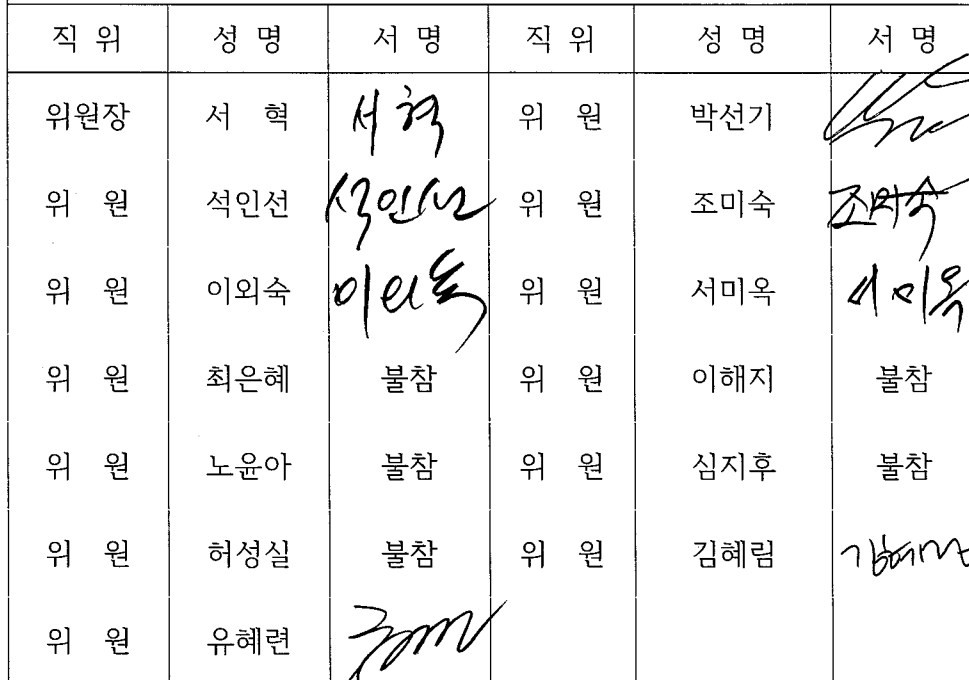 직 위 성 명 서 명 직 위 성 명 서 명
위원장 서 혁 서 혁 위 원 박선기
위 원 석인선 석인선 위 원 조미숙 조미숙
위 원 이외숙 이외숙 위 원 서미옥 서미옥
위 원 최은혜 불참 위 원 이해지 불참
위 원 노윤아 불참 위 원 심지후 불참
위 원 허성실 불참 위 원 김혜림 김혜림
위 원 유혜련